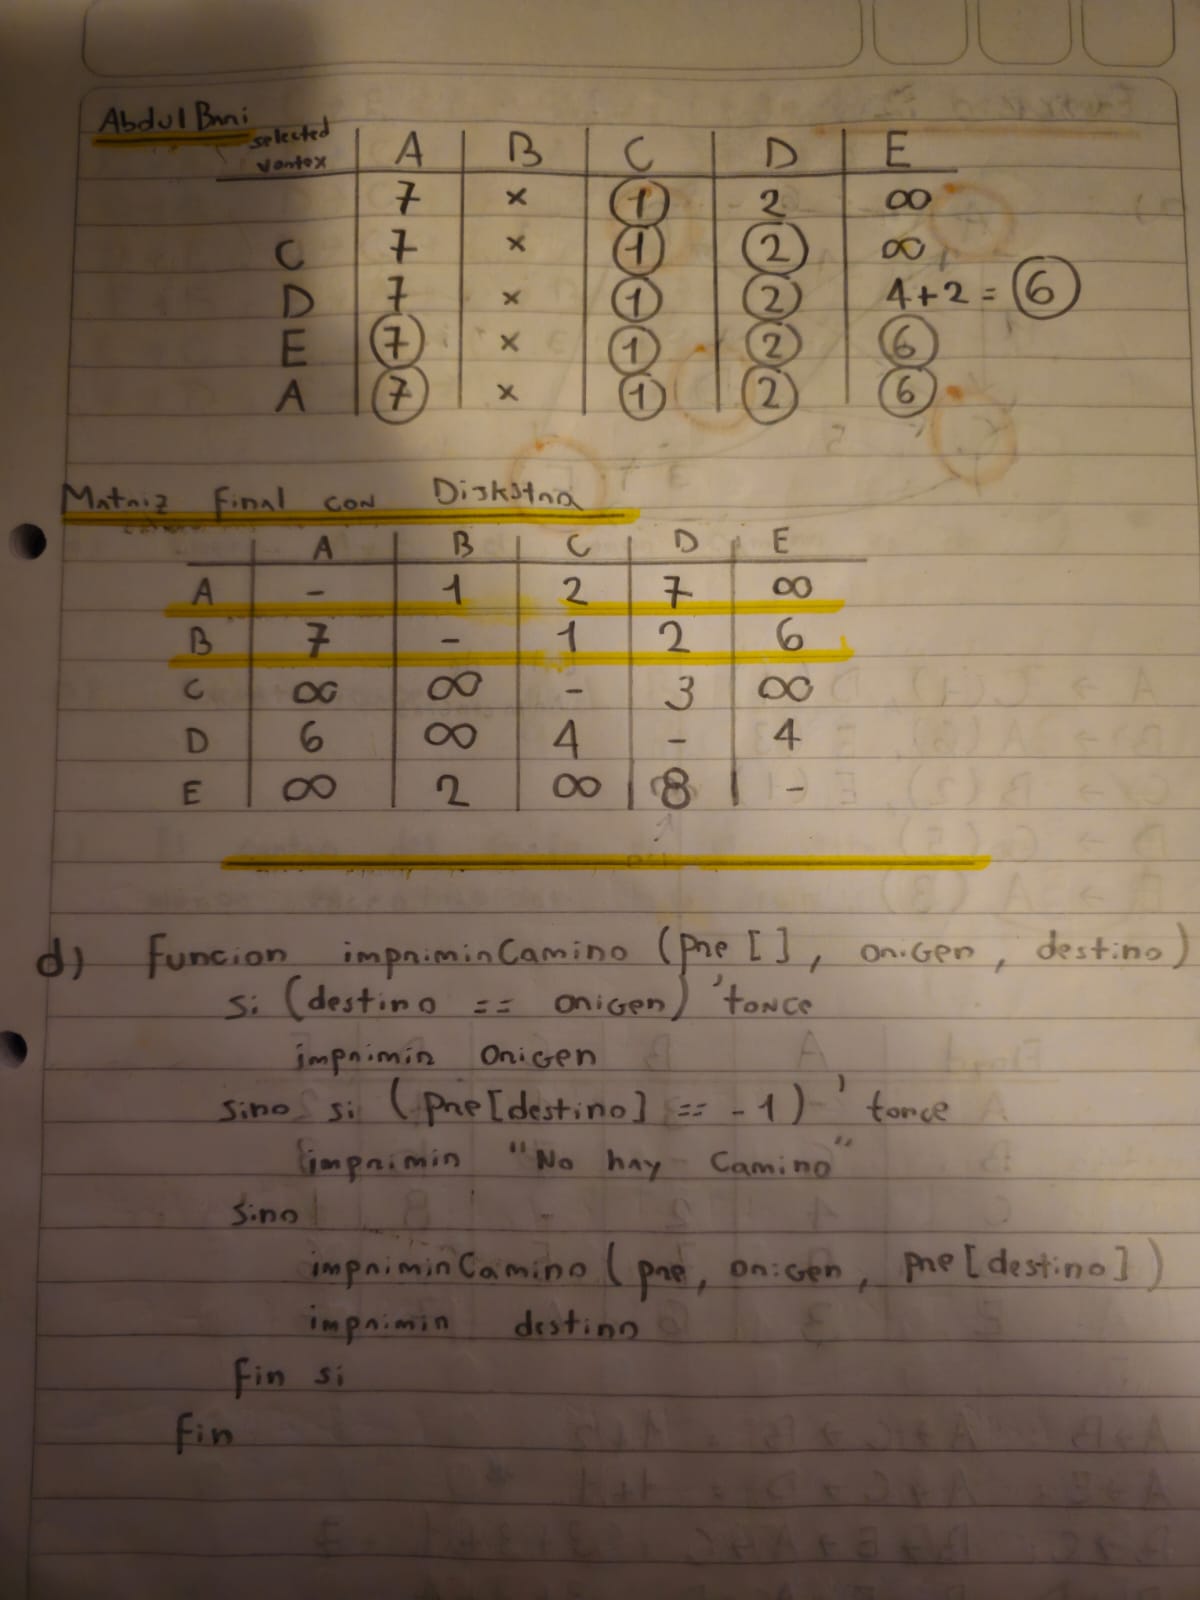 Abdul Bari
selected vertex | A | B | C | D | E
7 x 1 2 ∞
C 7 x 1 2 ∞
D 7 x 1 2 4+2 = 6
E 7 x 1 2 6
A 7 x 1 2 6
Matriz Final con Dijkstra
A B C D E
A - 1 2 7 ∞
B 7 - 1 2 6
C ∞ ∞ - 3 ∞
D 6 ∞ 4 - 4
E ∞ 2 ∞ 8 -
d) Funcion imprimirCamino (pre [], origen, destino)
si (destino == origen) 'tonce
imprimir origen
sino si (pre[destino] == -1) 'tonce
imprimir "No hay Camino"
sino
imprimirCamino (pre, origen, pre[destino])
imprimir destino
fin si
fin